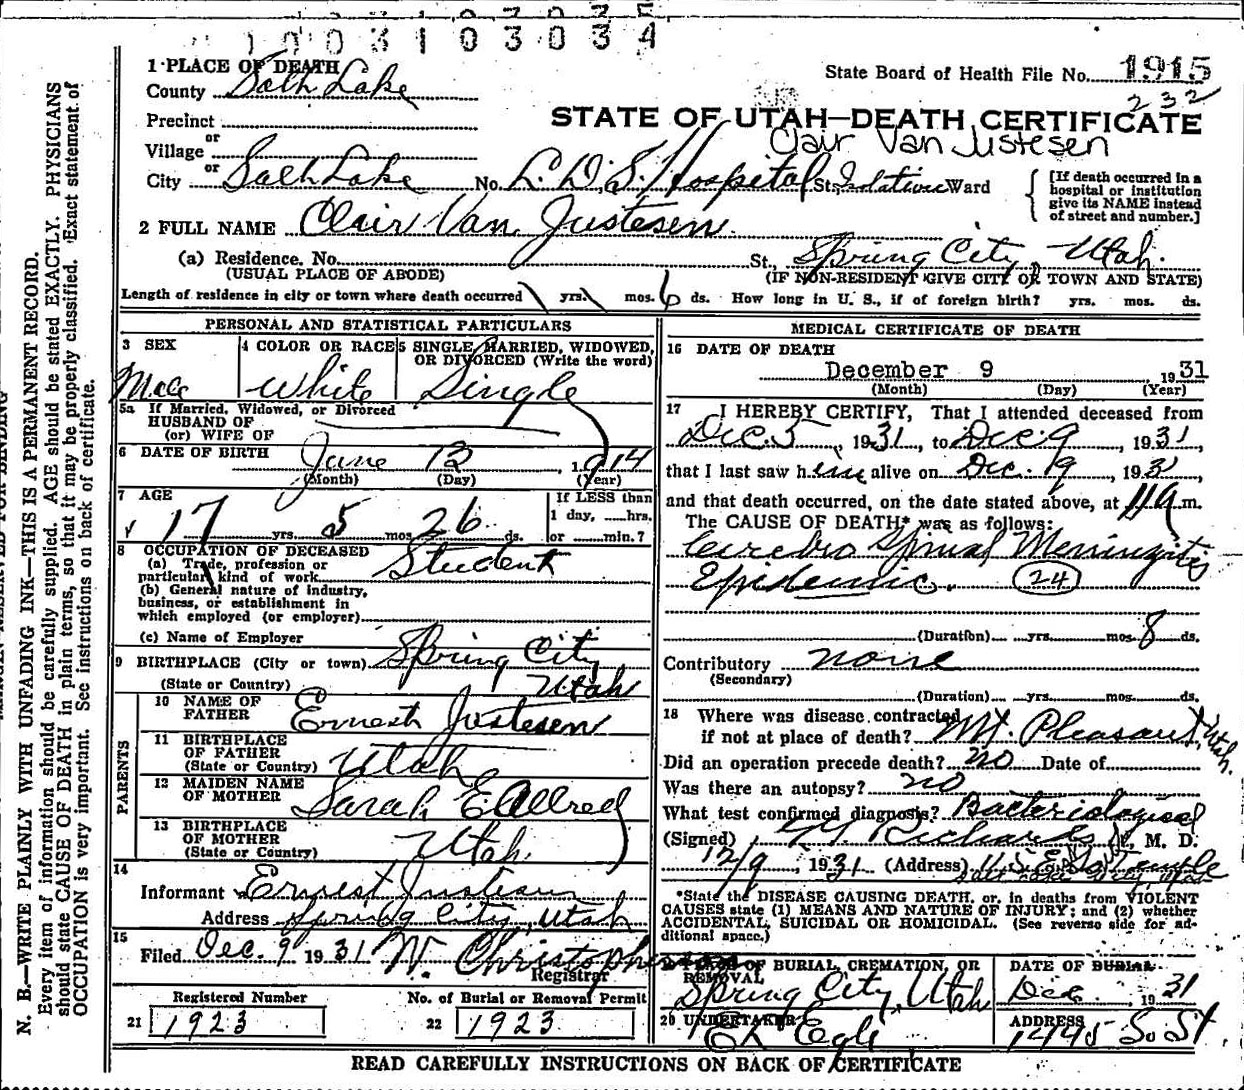 1003103034
1 PLACE OF DEATH
State Board of Health File No. 1915
County Salt Lake
232
STATE OF UTAH—DEATH CERTIFICATE
Precinct
Clair Van Justesen
or
Village
or
City Salt Lake No. L. D. S. Hospital St., Isolation Ward
[If death occurred in a hospital or institution give its NAME instead of street and number.]
2 FULL NAME Clair Van Justesen
(a) Residence. No. St., Spring City, Utah.
(USUAL PLACE OF ABODE) (IF NON-RESIDENT GIVE CITY OR TOWN AND STATE)
Length of residence in city or town where death occurred yrs. mos. 6 ds. How long in U. S., if of foreign birth? yrs. mos. ds.
PERSONAL AND STATISTICAL PARTICULARS
3 SEX 4 COLOR OR RACE 5 SINGLE, MARRIED, WIDOWED, OR DIVORCED (Write the word)
Male White Single
5a If Married, Widowed, or Divorced
HUSBAND OF
(or) WIFE OF
6 DATE OF BIRTH June 13, 1914
(Month) (Day) (Year)
7 AGE If LESS than
17 yrs. 5 mos. 26 ds. 1 day, ......hrs.
or ......min.?
8 OCCUPATION OF DECEASED
(a) Trade, profession or
particular kind of work Student
(b) General nature of industry,
business, or establishment in
which employed (or employer)
(c) Name of Employer
9 BIRTHPLACE (City or town) Spring City
(State or Country) Utah
PARENTS
10 NAME OF
FATHER Ernest Justesen
11 BIRTHPLACE
OF FATHER
(State or Country) Utah
12 MAIDEN NAME
OF MOTHER Sarah E. Allred
13 BIRTHPLACE
OF MOTHER
(State or Country) Utah.
14
Informant Ernest Justesen
Address Spring City, Utah
15
Filed Dec. 9 1931 W. Christopherson
Registrar
Registered Number No. of Burial or Removal Permit
21 1923 22 1923
MEDICAL CERTIFICATE OF DEATH
16 DATE OF DEATH
December 9 1931
(Month) (Day) (Year)
17 I HEREBY CERTIFY, That I attended deceased from
Dec. 5, 1931, to Dec. 9, 1931,
that I last saw him alive on Dec. 9, 1931,
and that death occurred, on the date stated above, at 11 a m.
The CAUSE OF DEATH* was as follows:
Cerebro Spinal Meningitis
Epidemic. 24
(Duration) yrs. mos. 8 ds.
Contributory none
(Secondary)
(Duration) yrs. mos. ds.
18 Where was disease contracted
if not at place of death? Mt. Pleasant, Utah.
Did an operation precede death? no Date of
Was there an autopsy? no
What test confirmed diagnosis? Bacteriological
(Signed) G. G. Richards, M. D.
12/9, 1931 (Address) U. S. E. So Temple
Salt Lake City, Utah
*State the DISEASE CAUSING DEATH, or, in deaths from VIOLENT
CAUSES state (1) MEANS AND NATURE OF INJURY; and (2) whether
ACCIDENTAL, SUICIDAL OR HOMICIDAL. (See reverse side for ad-
ditional space.)
19 PLACE OF BURIAL, CREMATION, OR REMOVAL DATE OF BURIAL
Spring City, Utah Dec. 1931
20 UNDERTAKER ADDRESS
1445 So St.
READ CAREFULLY INSTRUCTIONS ON BACK OF CERTIFICATE
MARGIN RESERVED FOR BINDING
N. B.—WRITE PLAINLY WITH UNFADING INK—THIS IS A PERMANENT RECORD.
Every item of information should be carefully supplied. AGE should be stated EXACTLY. PHYSICIANS
should state CAUSE OF DEATH in plain terms, so that it may be properly classified. Exact statement of
OCCUPATION is very important. See instructions on back of certificate.